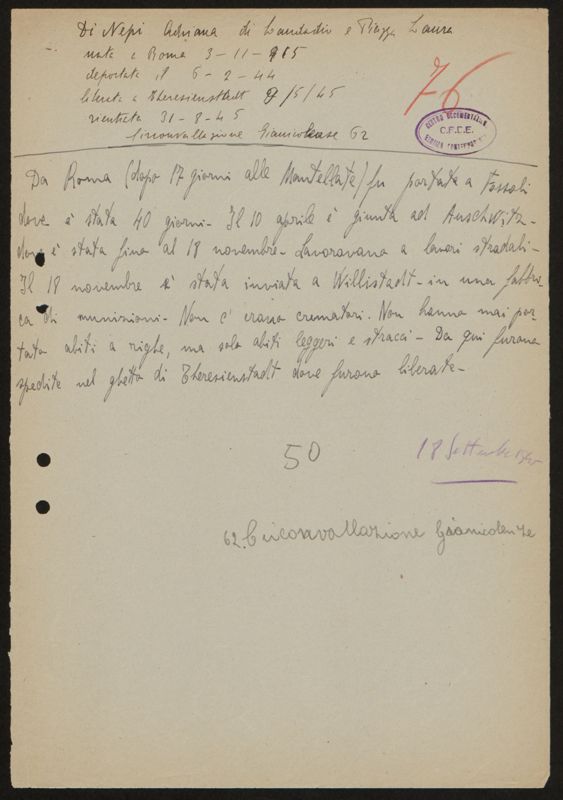 Di Nepi Adriana di Laudadio e Piazza Laura
nata a Roma 3-11-915
deportata il 6-2-44
liberata a Theresienstadt 9/5/45
rientrata 31-8-45
Circonvallazione Gianicolense 62
76
CENTRO DOCUMENTAZIONE
C.F.C.E.
EBRAICA CONTEMPORANEA
Da Roma (dopo 17 giorni alle Mantellate) fu portata a Fossoli
dove è stata 40 giorni- Il 10 aprile è giunta ad Auschwitz-
dove è stata fino al 18 novembre- Lavoravano a lavori stradali-
Il 18 novembre è stata inviata a Willistadt- in una fabbri
ca di munizioni- Non c'erano crematori. Non hanno mai por-
tato abiti a righe, ma solo abiti leggeri e stracci- Da qui furono
spedite nel ghetto di Theresienstadt dove furono liberate-
50
18 Settembre
62. Circonvallazione Gianicolense